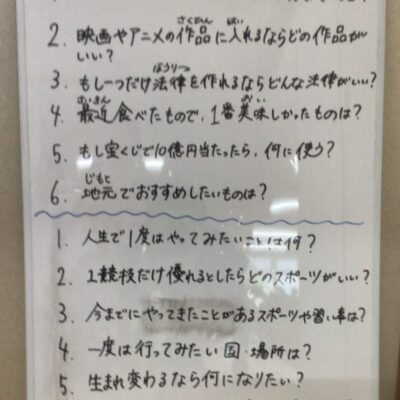 2. 映画やアニメの作品に入れるならどの作品がいい?
3. もし一つだけ法律を作れるならどんな法律がいい?
4. 最近食べたもので、1番美味しかったものは?
5. もし宝くじで10億円当たったら、何に使う?
6. 地元でおすすめしたいものは?
1. 人生で1度はやってみたいことは何?
2. 1競技だけ優れるとしたらどのスポーツがいい?
3. 今までにやってきたことがあるスポーツや習い事は?
4. 一度は行ってみたい国・場所は?
5. 生まれ変わるなら何になりたい?